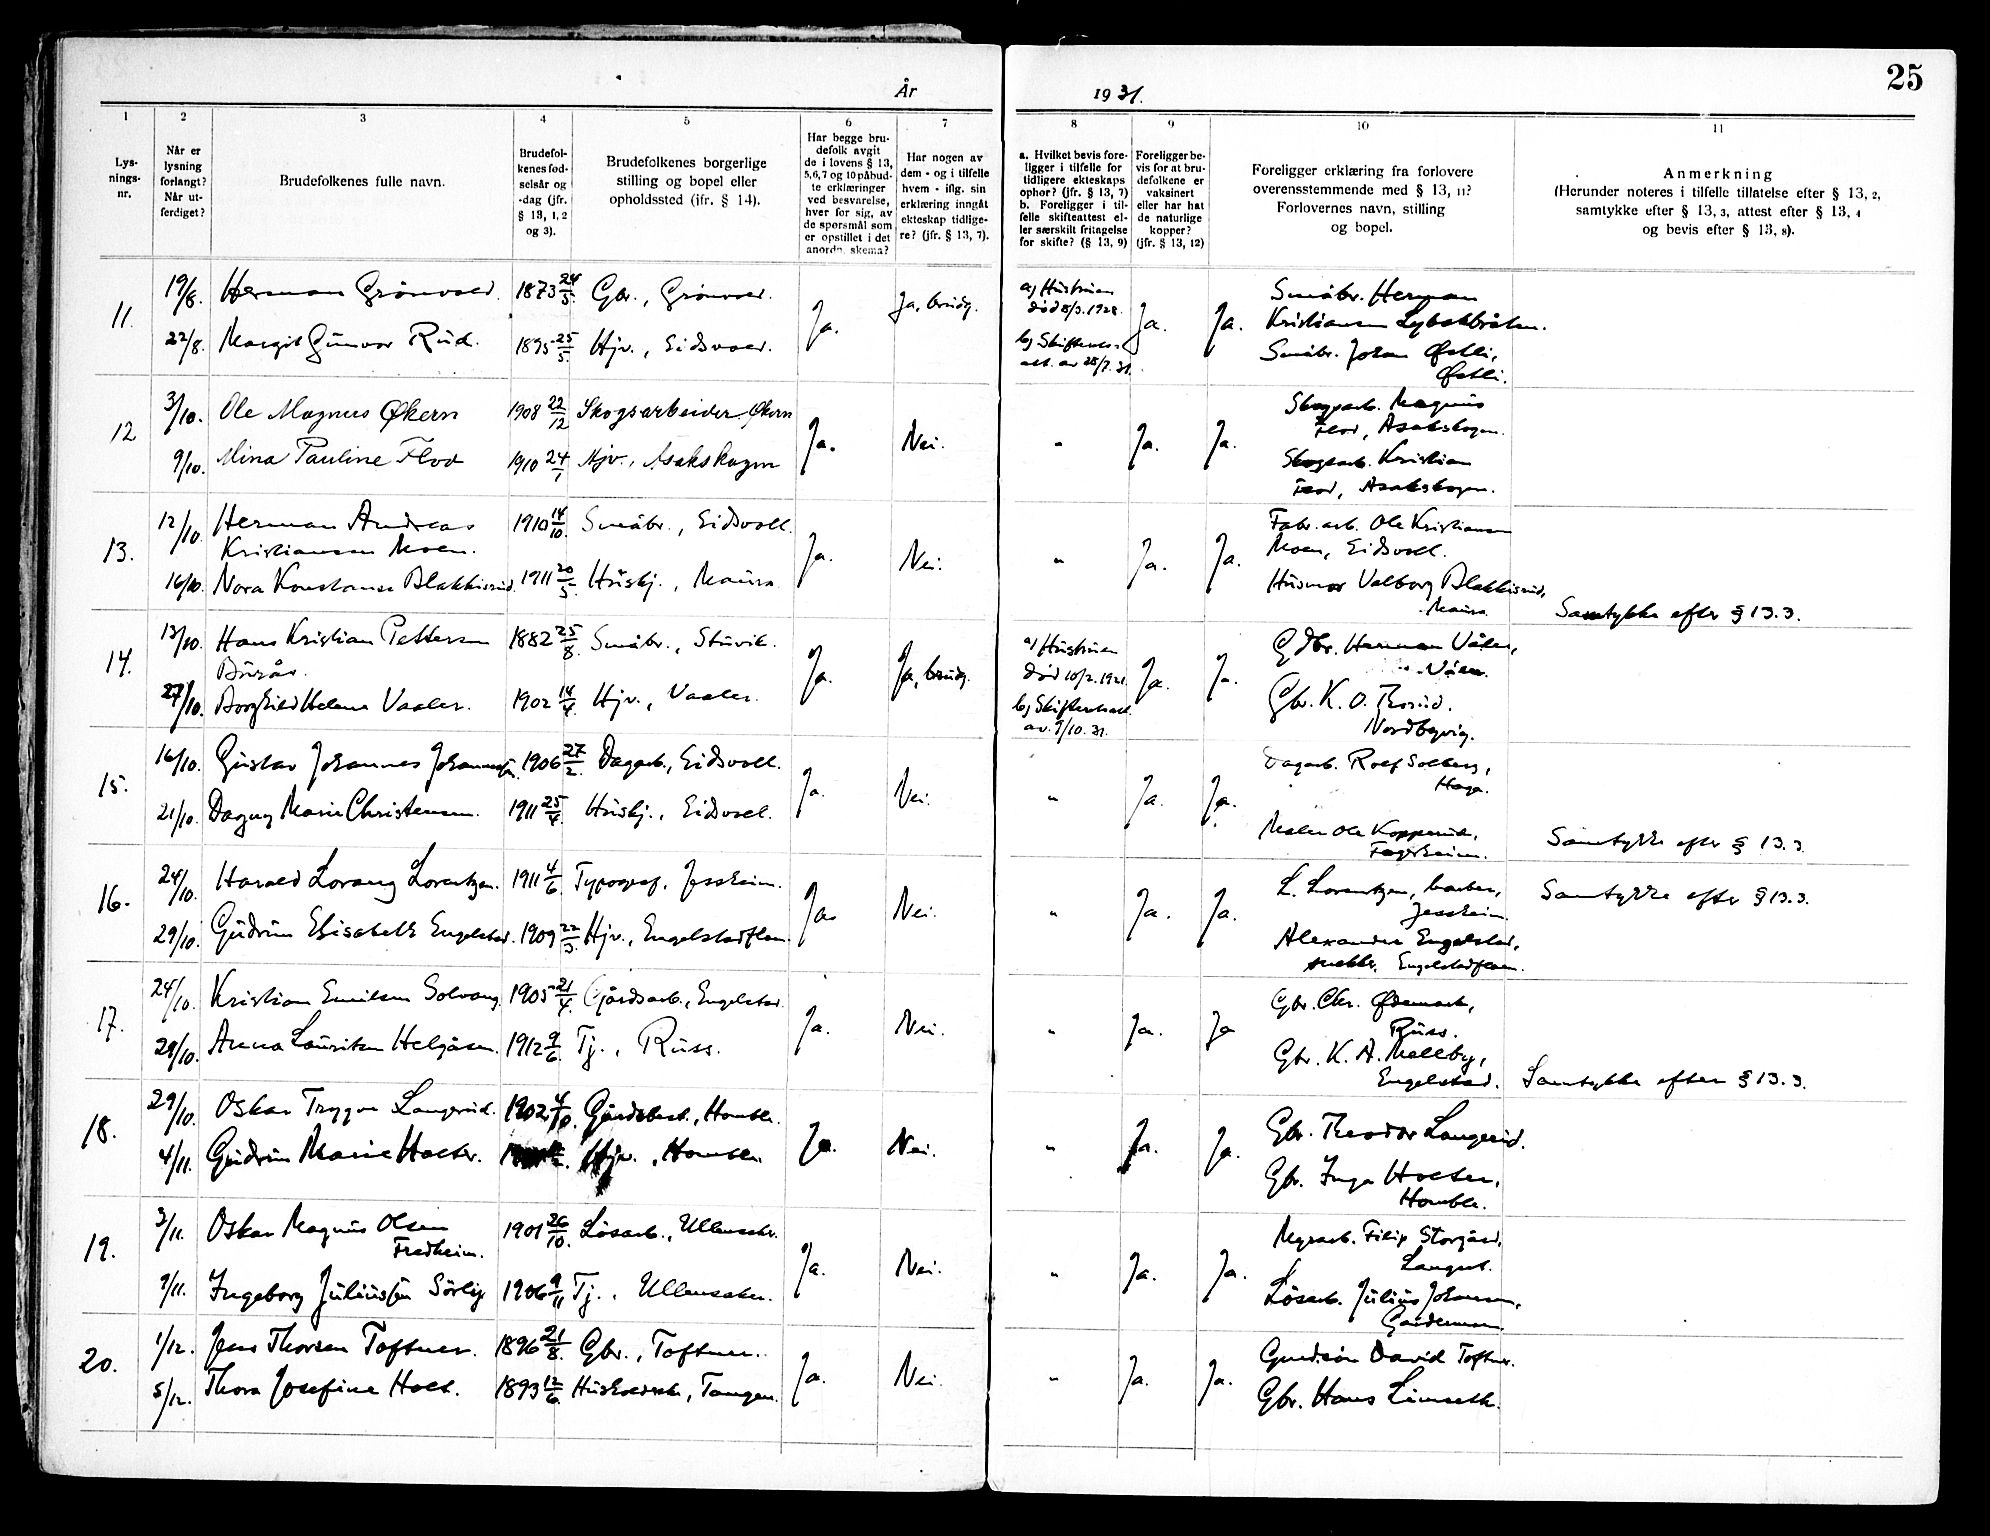 25
År
1931.
1
2
3
4
5
6
7
8
9
10
11
Lys-
nings-
nr.
Når er
lysning
forlangt?
Når ut-
ferdiget?
Brudefolkenes fulle navn.
Brudefol-
kenes fød-
selsår og
-dag (jfr.
§ 13, 1, 2
og 3).
Brudefolkenes borgerlige
stilling og bopel eller
opholdssted (jfr. § 14).
Har begge bru-
defolk avgit
de i lovens § 13,
5,6,7 og 10 påbud-
te erklæringer
ved besvarelse,
hver for sig, av
de spørsmål som
er opstillet i det
anordn. skema?
Har nogen av
dem - og i tilfelle
hvem - iflg. sin
erklæring inngåt
ekteskap tidlige-
re? (jfr. § 13, 7).
a. Hvilket bevis fore-
ligger i tilfelle for
tidligere ekteskaps
ophør? (jfr. § 13, 7)
b. Foreligger i til-
felle skifteattest el-
ler særskilt fritagelse
for skifte? (§ 13, 9)
Foreligger be-
vis for at bru-
defolkene er
vaksinert
eller har hat
de naturlige
kopper?
(jfr. § 13, 12)
Foreligger erklæring fra forlovere
overensstemmende med § 13, 11?
Forlovernes navn, stilling
og bopel.
Anmerkning
(Herunder noteres i tilfelle tillatelse efter § 13, 2,
samtykke efter § 13, 3, attest efter § 13, 4
og bevis efter § 13, 8).
11.
19/8. Herman Grönvold. 1873 24/5. Gbr., Grönvold.
22/8. Margit Gunvor Rud. 1895 25/5. Hjv., Eidsvold.
Ja. Ja, brudg.
a) Hustruen
död 8/3.1928.
b) Skifteatt. av 28/7.31.
Ja. Ja.
Småbr. Herman
Kristiansen
Småbr. Johan Østli,
Østli.
12
3/10. Ole Magnus Økern 1908 22/12 Skogsarbeider, Økern
9/10. Mina Pauline Flod 1910 24/1 Hjv., Asakskogen
Ja. Nei. " Ja. Ja.
Skogsarb. Magnus
Flod, Asakskogen.
Skogsarb. Kristian
Flod, Asakskogen.
13.
12/10. Herman Andreas 1910 14/10. Småbr., Eidsvoll.
Kristiansen Moen.
16/10. Nora Konstanse Blakkisrud. 1911 20/5. Hushj., Maura
Ja. Nei. " Ja. Ja.
Fabr.arb. Ole Kristiansen
Moen, Eidsvoll.
Husmor Valborg Blakkisrud,
Maura.
Samtykke efter § 13.3.
14.
13/10. Hans Kristian Pettersen 1882 25/8. Småbr., Stuvik.
Burås.
27/10. Borghild Helene Vaaler. 1902 14/4. Hjv., Vaaler.
Ja. Ja, brudg.
a) Hustruen
död 10/2.1921.
b) Skifteattest
av 9/10.31.
Ja. Ja.
Gdbr. Herman Våler,
Våler.
Gbr. K. O. Tosrud.
Nordbyvig.
15.
16/10. Gustav Johannes Johannessen. 1906 27/2. Dagarb., Eidsvoll.
21/10. Dagny Marie Christensen. 1911 25/4. Hushj., Eidsvoll.
Ja. Nei. " Ja. Ja.
Dagarb. Rolf Solberg,
Haga.
Maler Ole Kopperud,
Fagerheim.
Samtykke efter § 13.3.
16.
24/10. Harald Lorang Lorentzen. 1911 4/6 Typograf, Jessheim.
29/10. Gudrun Elisabeth Engelstad. 1909 22/3. Hjv., Engelstadflaen.
Ja. Nei. " Ja. Ja.
L. Lorentzen, barber,
Jessheim.
Alexander Engelstad,
snekker, Engelstadflaen.
Samtykke efter § 13.3.
17.
24/10. Kristian Emilsen Solvang. 1905 21/4. Gårdsarb., Engelstad.
28/10. Anna Lauritsen Helgåsen. 1912 9/6. Tj., Russ.
Ja. Nei. " Ja. Ja
Gbr. Chr. Ødemark,
Russ.
Gbr. K. A. Mellby,
Engelstad.
Samtykke efter § 13.3.
18.
29/10. Oskar Trygve Langerud. 1902 4/10. Gårdsbest., Homble.
4/11. Gudrun Marie Holter. Hjv., Homble.
Ja. Nei. " Ja. Ja.
Gbr. Theodor Langerud.
Gbr. Inga Holter,
Homble.
19.
3/11. Oskar Magnus Olsen 1901 26/10. Løsarb., Ullensaker.
Fredheim.
9/11. Ingeborg Juliussen Sörlig 1906 9/11 Tj., Ullensaker.
Ja. Nei. " Ja. Ja.
Myrarb. Filip Storgård,
Løsarb. Julius Johansen,
Gardermoen.
20.
1/12. Jens Thorsen Toftner. 1896 21/8. Gbr., Toftner.
5/12. Thora Josefine Holt. 1893 12/6. Tangen.
Ja. Nei. " Ja. Ja.
David Toftner.
Gbr. Hans Limseth.